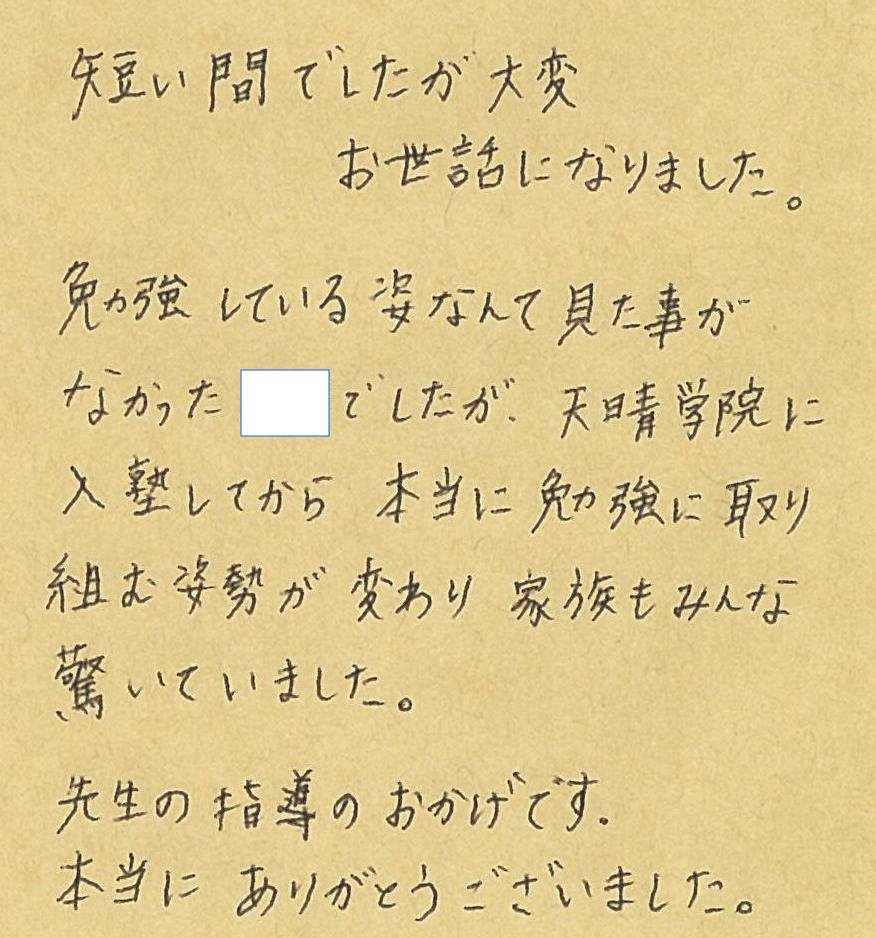 短い間でしたが大変
お世話になりました。
勉強している姿なんて見た事が
なかった でしたが、天晴学院に
入塾してから 本当に勉強に取り
組む姿勢が変わり 家族もみんな
驚いていました。
先生の指導のおかげです。
本当に ありがとうございました。